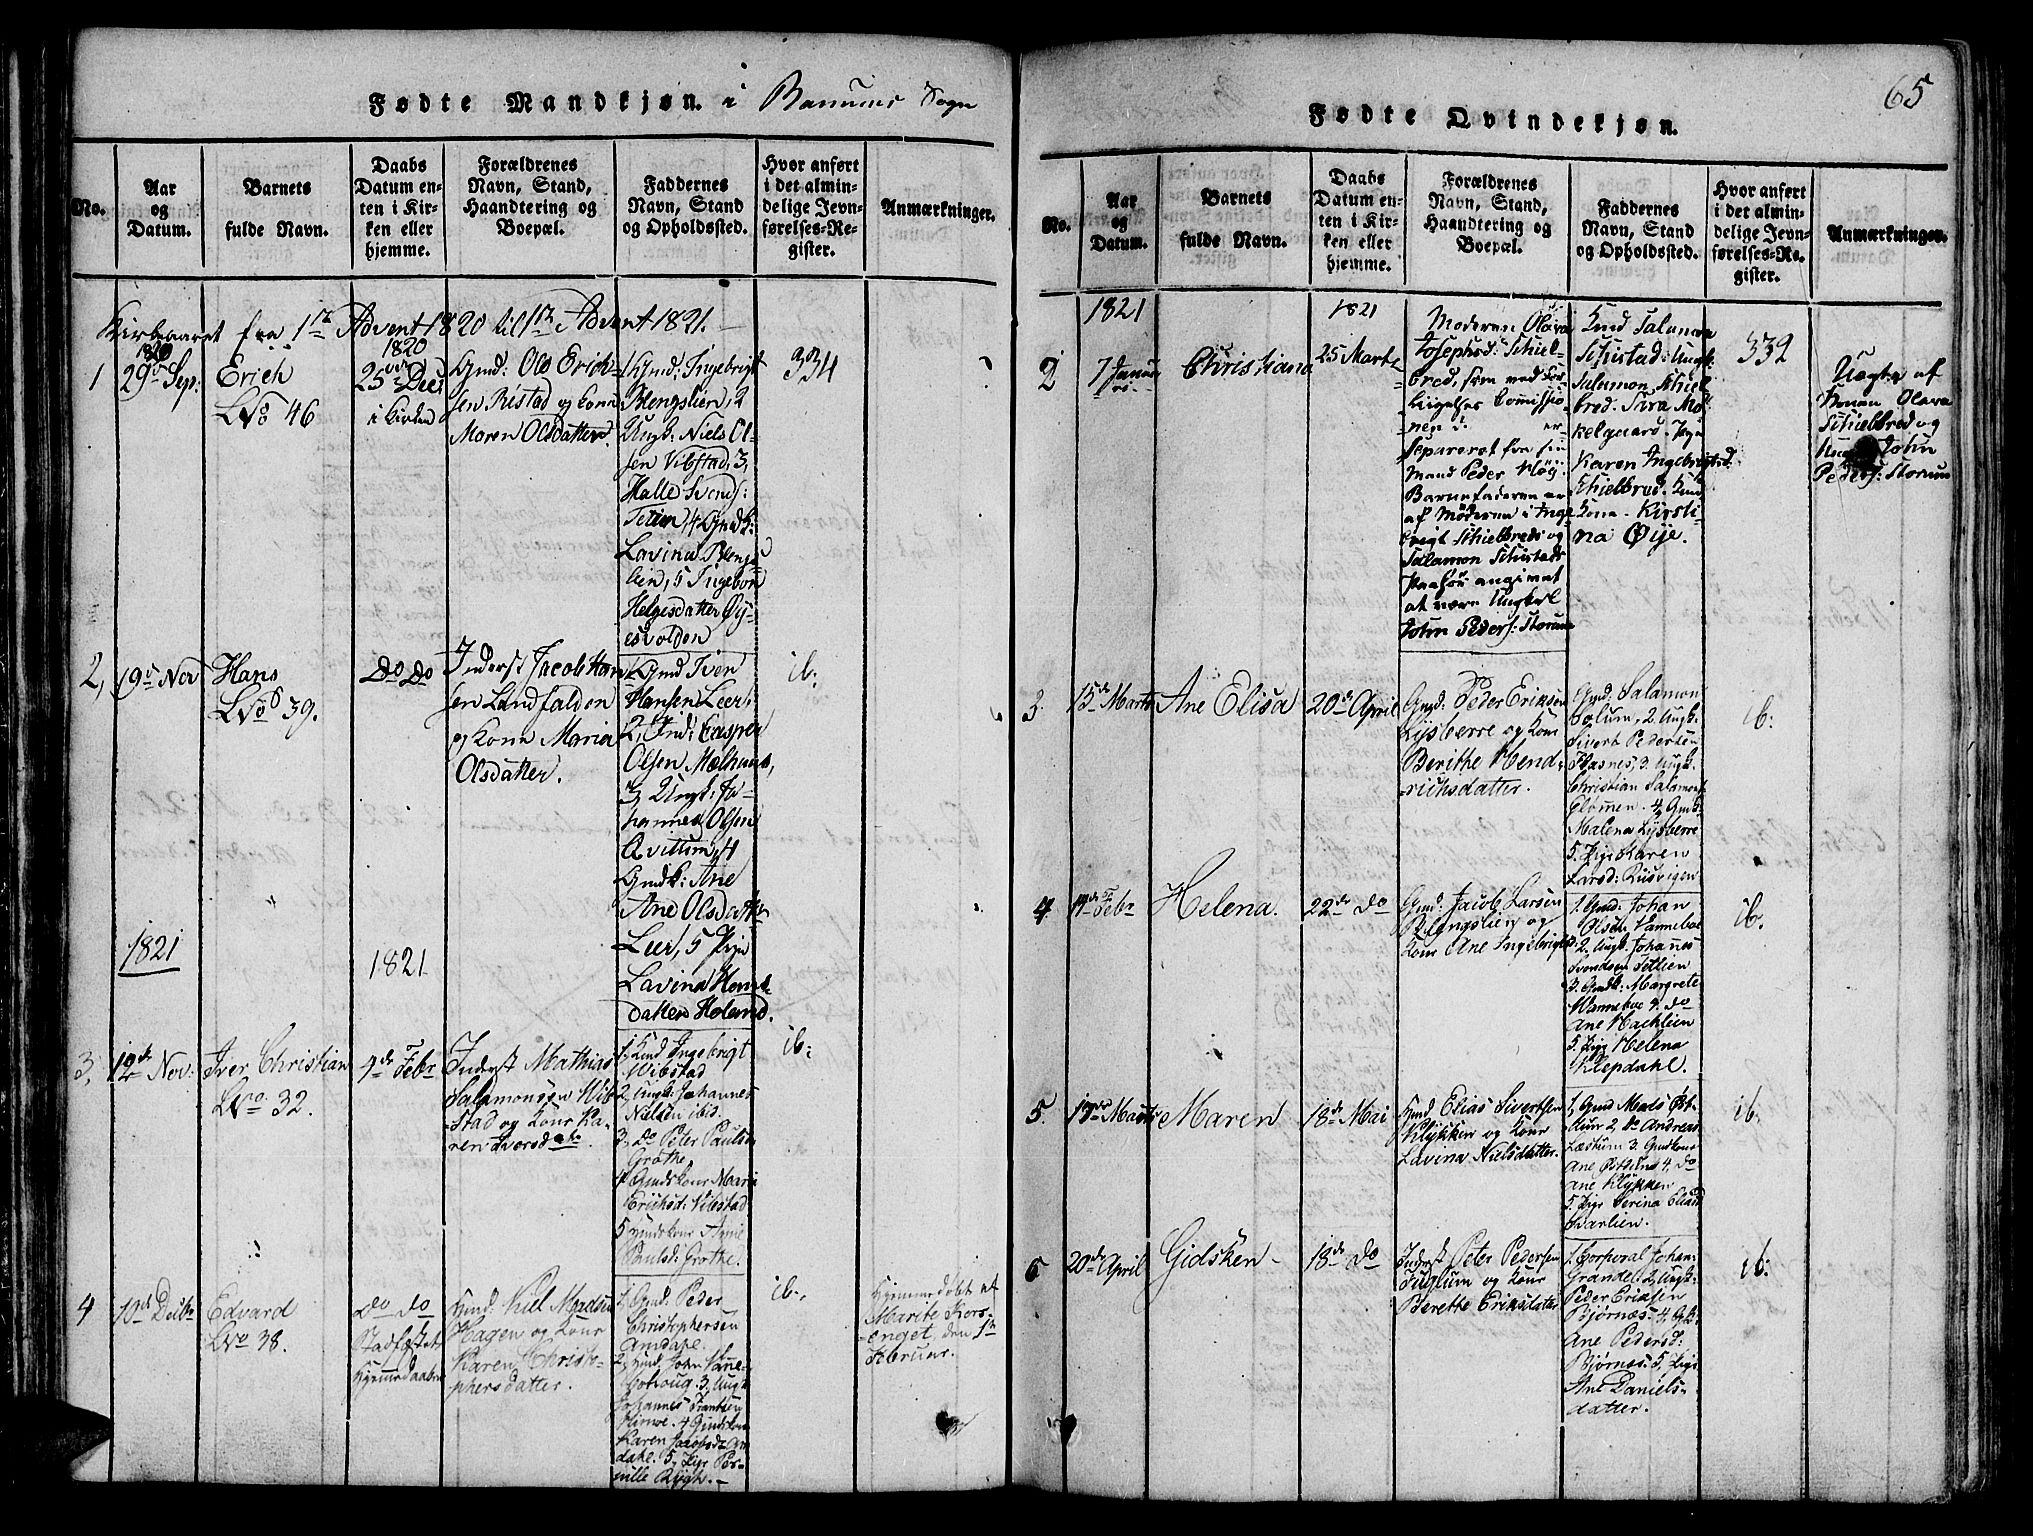 Fødte Mandkjøn. i Ranums Sogn
No.
Aar
og
Datum.
Barnets
fulde Navn.
Daabs
Datum en-
ten i Kir-
ken eller
hjemme.
Forældrenes
Navn, Stand,
Haandtering og
Boepæl.
Faddernes
Navn, Stand
og Opholdssted.
Hvor anført
i det almin-
delige Jevn-
førelses-Re-
gister.
Anmærkninger.
Kirkeaaret fra 1te Advent 1820 til 1te Advent 1821.
1
1820
29de Sep:
Erich
LNo 46
1820
25de Dec:
i Kirken
Gmd: Ole Erich-
sen Ristad og Kone
Maren Olsdatter.
1, Gmd: Ingebrigt
Blengslien, 2
Ungk: Niels Ol-
sen Vibstad, 3,
Halle Svends:
4 Gmdk:
Lavina Blengs-
lien, 5 Ingebor
Helgesdatter Øy-
esvolden
334
2,
19de Nov
Hans
LNo 39.
Do Do
Inderst Jacob Han-
sen Landfalden
og Kone Maria
Olsdatter.
1, Gmd Iver
Hansen Leer,
2, Ind: Casper
Olsen Mælhuus,
3, Ungk: Jo-
hannes Olsen
Qvittum, 4
Gmdk: Ane
Ane Olsdatter
Leer, 5 Pige
Lavina
datter Holand.
ib:
1821
1821
3,
12de Nov:
Iver Christian
LNo. 32.
9de Febr
Inderst Mathias
Salamonsen Wib-
stad og Kone Ka-
ren Iversdatr
1, Gmd Ingebrigt
Wibstad
2, Ungk: Johannes
Nielsen ibid.
3, Do Peter Paulsen
Grøthe,
4 Gmdskone Maria
Erichsd: Vibstad
5 Gmdskone
Paulsd: Grøthe.
ib:
4
19de Decbr
Edvard
LNo 38.
Do Do
Stadfæstet
Hjemmedaaben
Gmd: Kiel Madsen
Hagen og Kone
Karen Christo-
phersdatter.
1, Gmd: Peder
Christophersen
Amdahl.
2, Gmd John Vanne-
3, Ungk
Johannes Frantsen
4 Gmdskone
Karen Jacobsdr Am-
dahl. 5, Pige Per-
nille Rygh.-
ib.,
Hjemmedøbt af
Marite Kors-
enget, den 1te
Februar.
65
Fødte Qvindekjøn.
No.
Aar
og
Datum.
Barnets
fulde Navn.
Daabs
Datum en-
ten i Kir-
ken eller
hjemme.
Forældrenes
Navn, Stand,
Haandtering og
Boepæl.
Faddernes
Navn, Stand
og Opholdssted.
Hvor anført
i det almin-
delige Jevn-
førelses-Re-
gister.
Anmærkninger.
1821
1821
2
7 Janua-
rii
Christiana
25 Marts
Moderen Olava
Josephsd: Schiel-
bred, som ved For-
ligelses Commissio-
nen er
separeret fra sin
Mand Peder Kløg.
Barnefaderen er
af Moderen i Inge-
brigt Schielbreds og
Salamon Schistads
Paahør angivet
at være Ungkarl
John Peders: Storum
Gmd Salamon
Schistad: Ungk:
Salamon Schiel-
bred. Sira Mø-
kelgaard. Pige
Karen Ingebrigtsd:
Schielbred. Gmd
Kone. Kirsti-
na Øije.
332
Uægte af
Konen Olava
Schielbred og
Ungk John
Peders: Storum
3.
15de Marts
Ane Elisa
20de April
Gmd. Peder Eriksen
Lysberre og Kone
Berithe Hend-
richsdatter.
Gmd. Salamon
Solum, 2, Ungk.
Sivert Pedersen
Flasnes, 3, Ungk.
Christian Salamons:
Glømen. 4, Gmdk.
Malena Lysberre
5. Pige Karen
Larsd: Ruisvigen
ib:
4.
14de Febr
Helena.
22de Do
Gmd. Jacob Larsen
Blengslien og
Kone Ane Ingebrigtsd:
1. Gmd: Johan
Olsen Vannebo
2. Ungk. Johannes
Svendsen Setlien
3. Gmdk: Margrete
Wannebue 4. do
Ane Hachlien
5. Pige Helena
Klepdahl.
ib.
5.
17de Marts
Maren
18de Mai
Gmd Elias Sivertsen
Klykken og Kone
Lavina Nielsdatter.
1, Gmd Mads Øst-
2 do Andreas
Læstum 3. Gmdskone
Ane 4. do
Ane Klykken
5. Pige Serina Eliasd
Svarlien.
ib.
6
20de April
Gidsken -
18de Do
Inderst Peter Pedersen
Fuglum og Kone
Berette Eriksdater
1. Corporal Johan
Grandel 2, Ungk:
Peder Eriksen
Bjørnes: 4, Gk:
Ane Pedersd:
Bjørnes: 5, Pige
Ane Daniels-
datter.
ib: